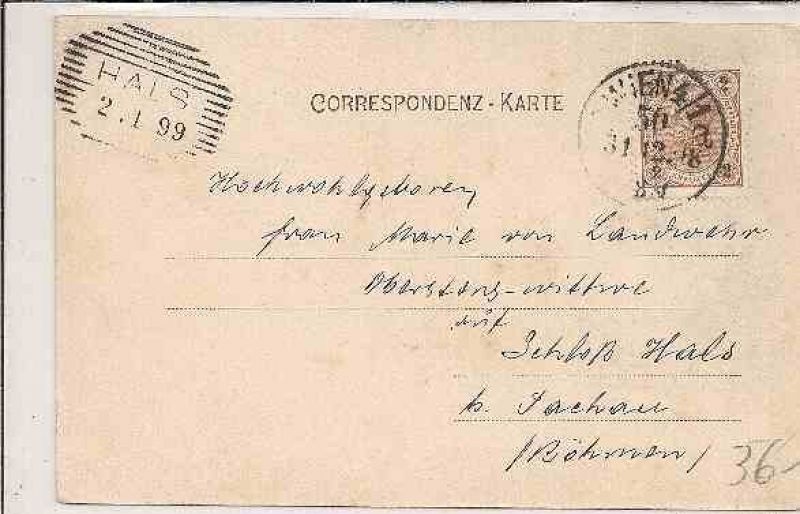 HALS
2.1.99
CORRESPONDENZ-KARTE
WIEN 4/1
31.12.98
Hochwohlgeboren
Frau Marie von Landwehr
Oberstens-wittwe
auf
Schloß Hals
b. Tachau
/Böhmen/
36